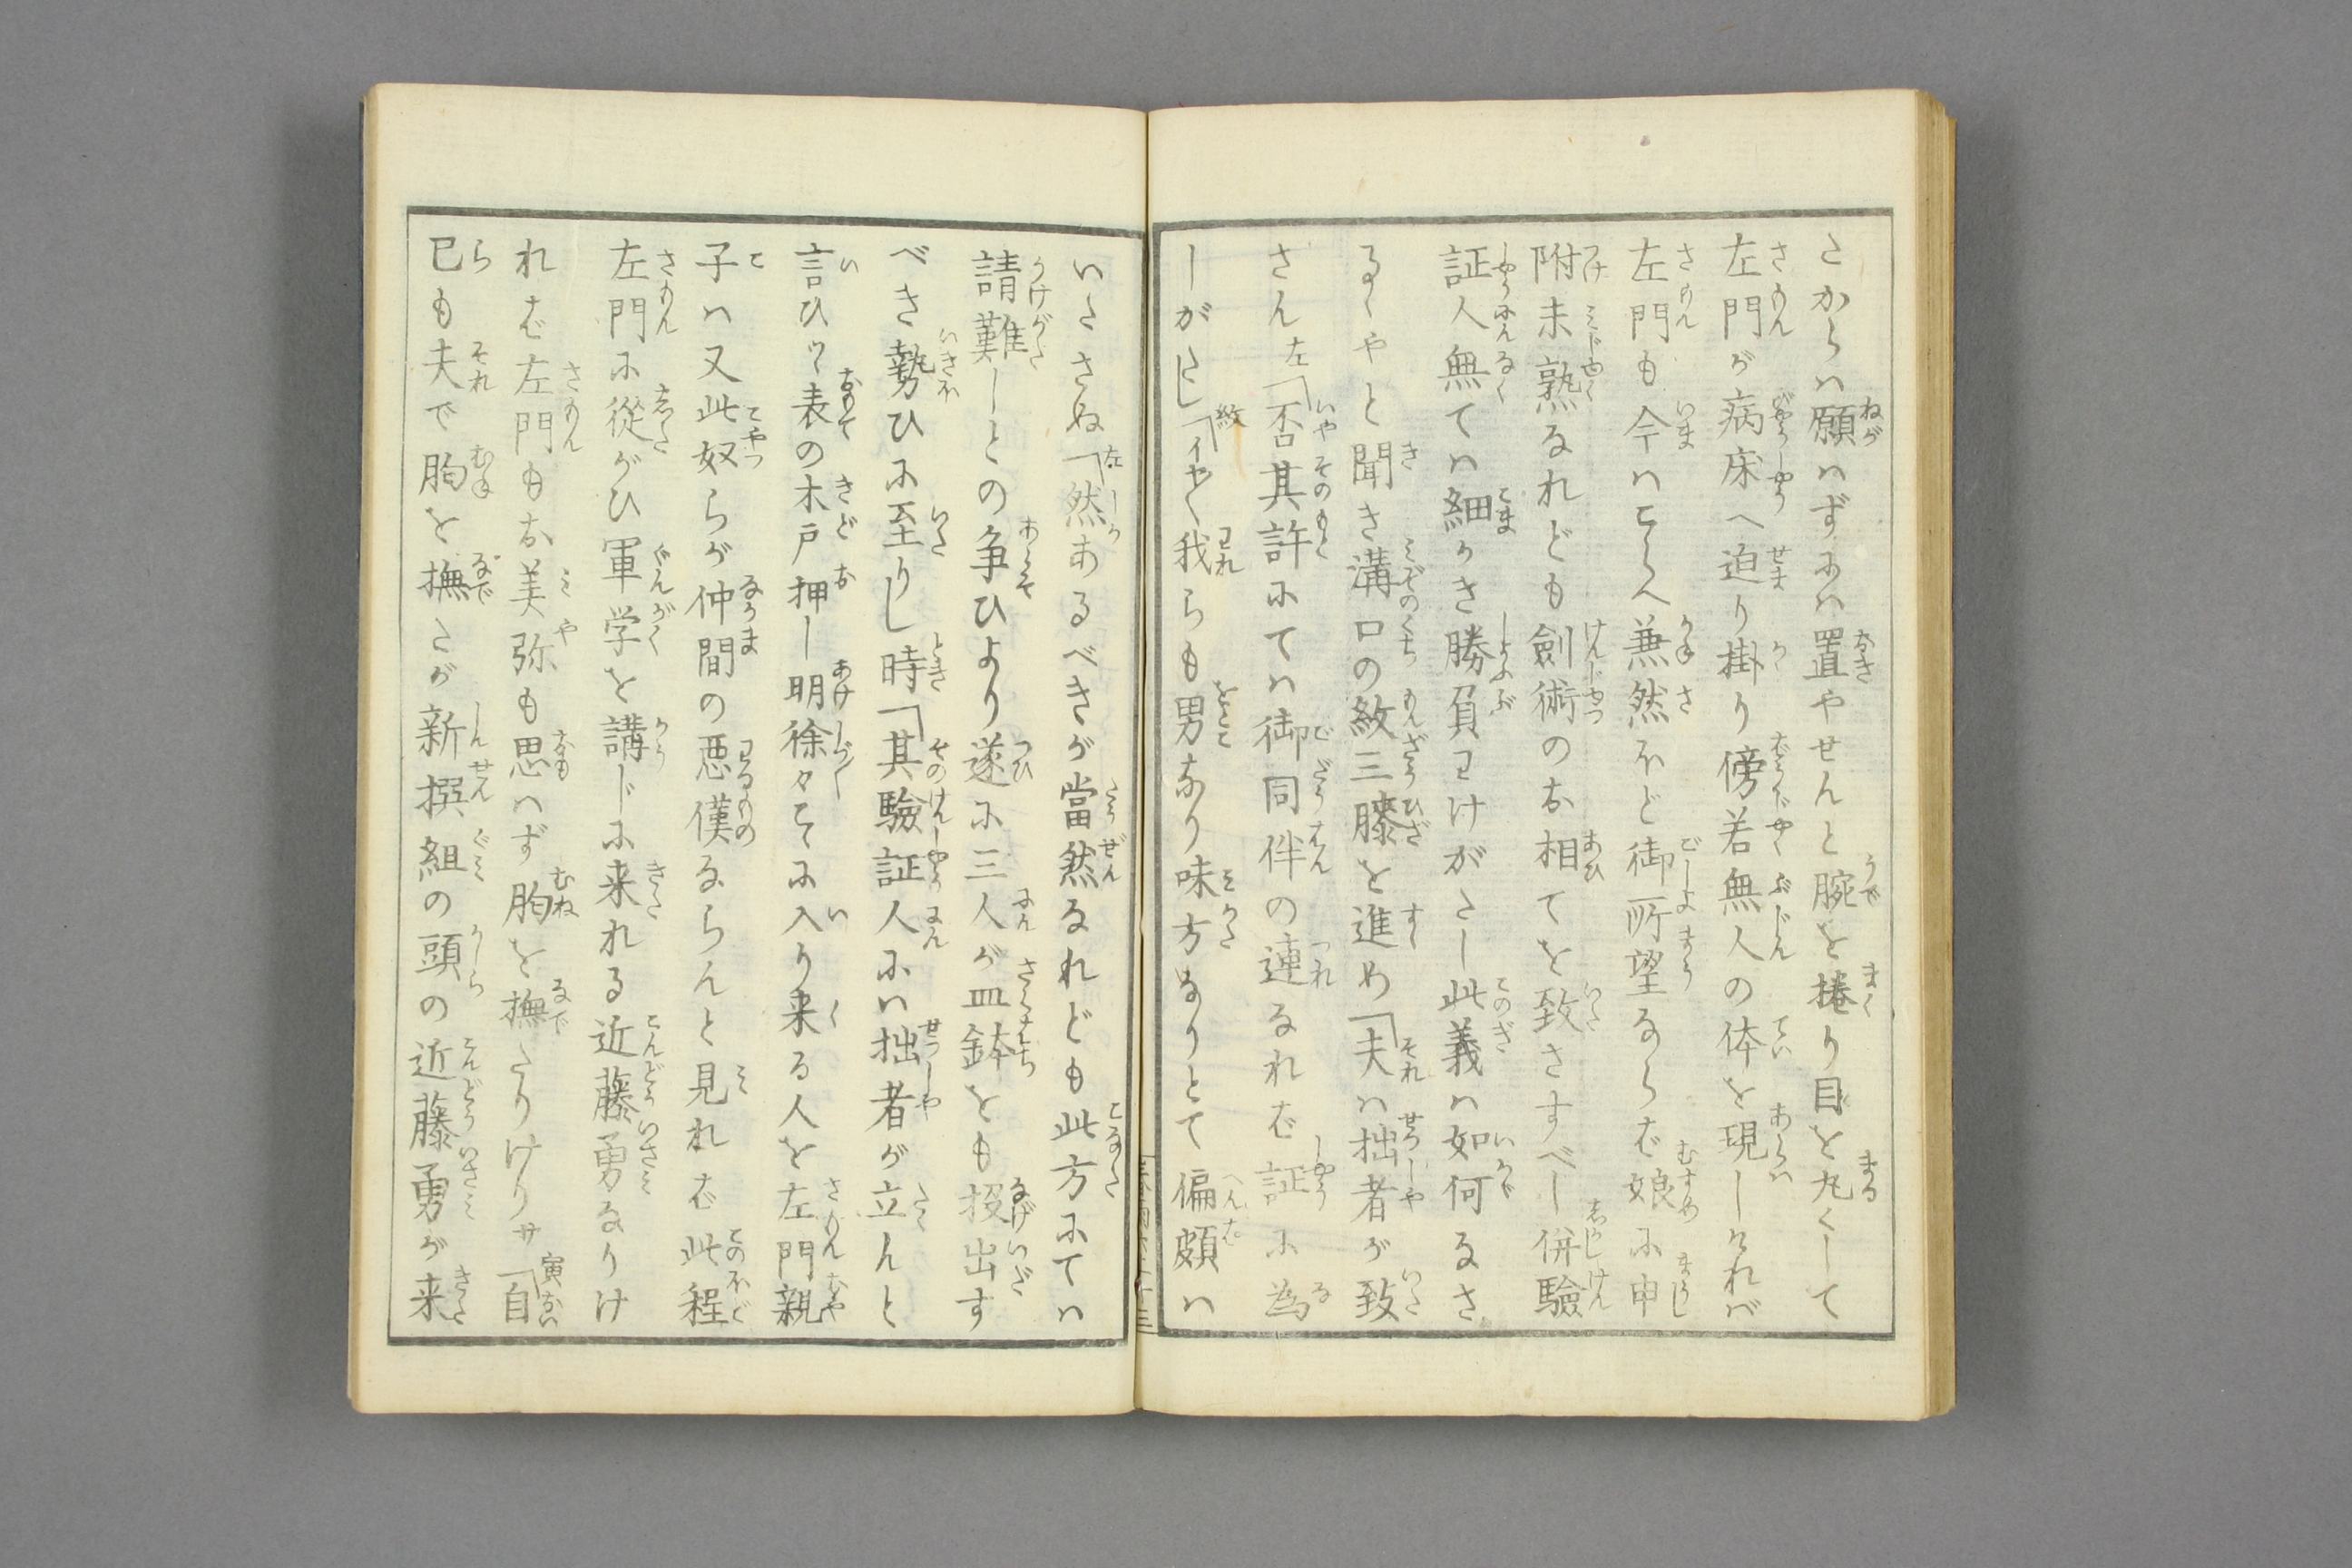 さからは願はずには置やせんと腕を捲り目を丸くして
左門が病床へ迫り掛り傍若無人の体を現しければ
左門も今はこらへ兼然ほど御所望ならば娘に申
附未熟なれども劍術のお相てを致さすべし併驗
証人無ては細かき勝負わけがたし此義は如何なさ
るゝやと聞き溝口の紋三膝を進め「夫は拙者が致
さん左「否其許にては御同伴の連なれば証に為
しがたし紋「イヤ〱我らも男なり味方なりとて偏頗は
いたさぬ左「然あるべきが當然なれども此方にては
請難しとの争ひより遂に三人が皿鉢をも投出す
べき勢ひに至りし時「其驗証人には拙者が立んと
言ひつゝ表の木戸押し明徐々こゝに入り来る人を左門親
子は又此奴らが仲間の悪漢ならんと見れば此程
左門に從がひ軍学を講じに来れる近藤勇なりけ
れば左門もお美弥も思へず胸を撫たりけりサ寅「自
己も夫で胸を撫たが新撰組の頭の近藤勇が来